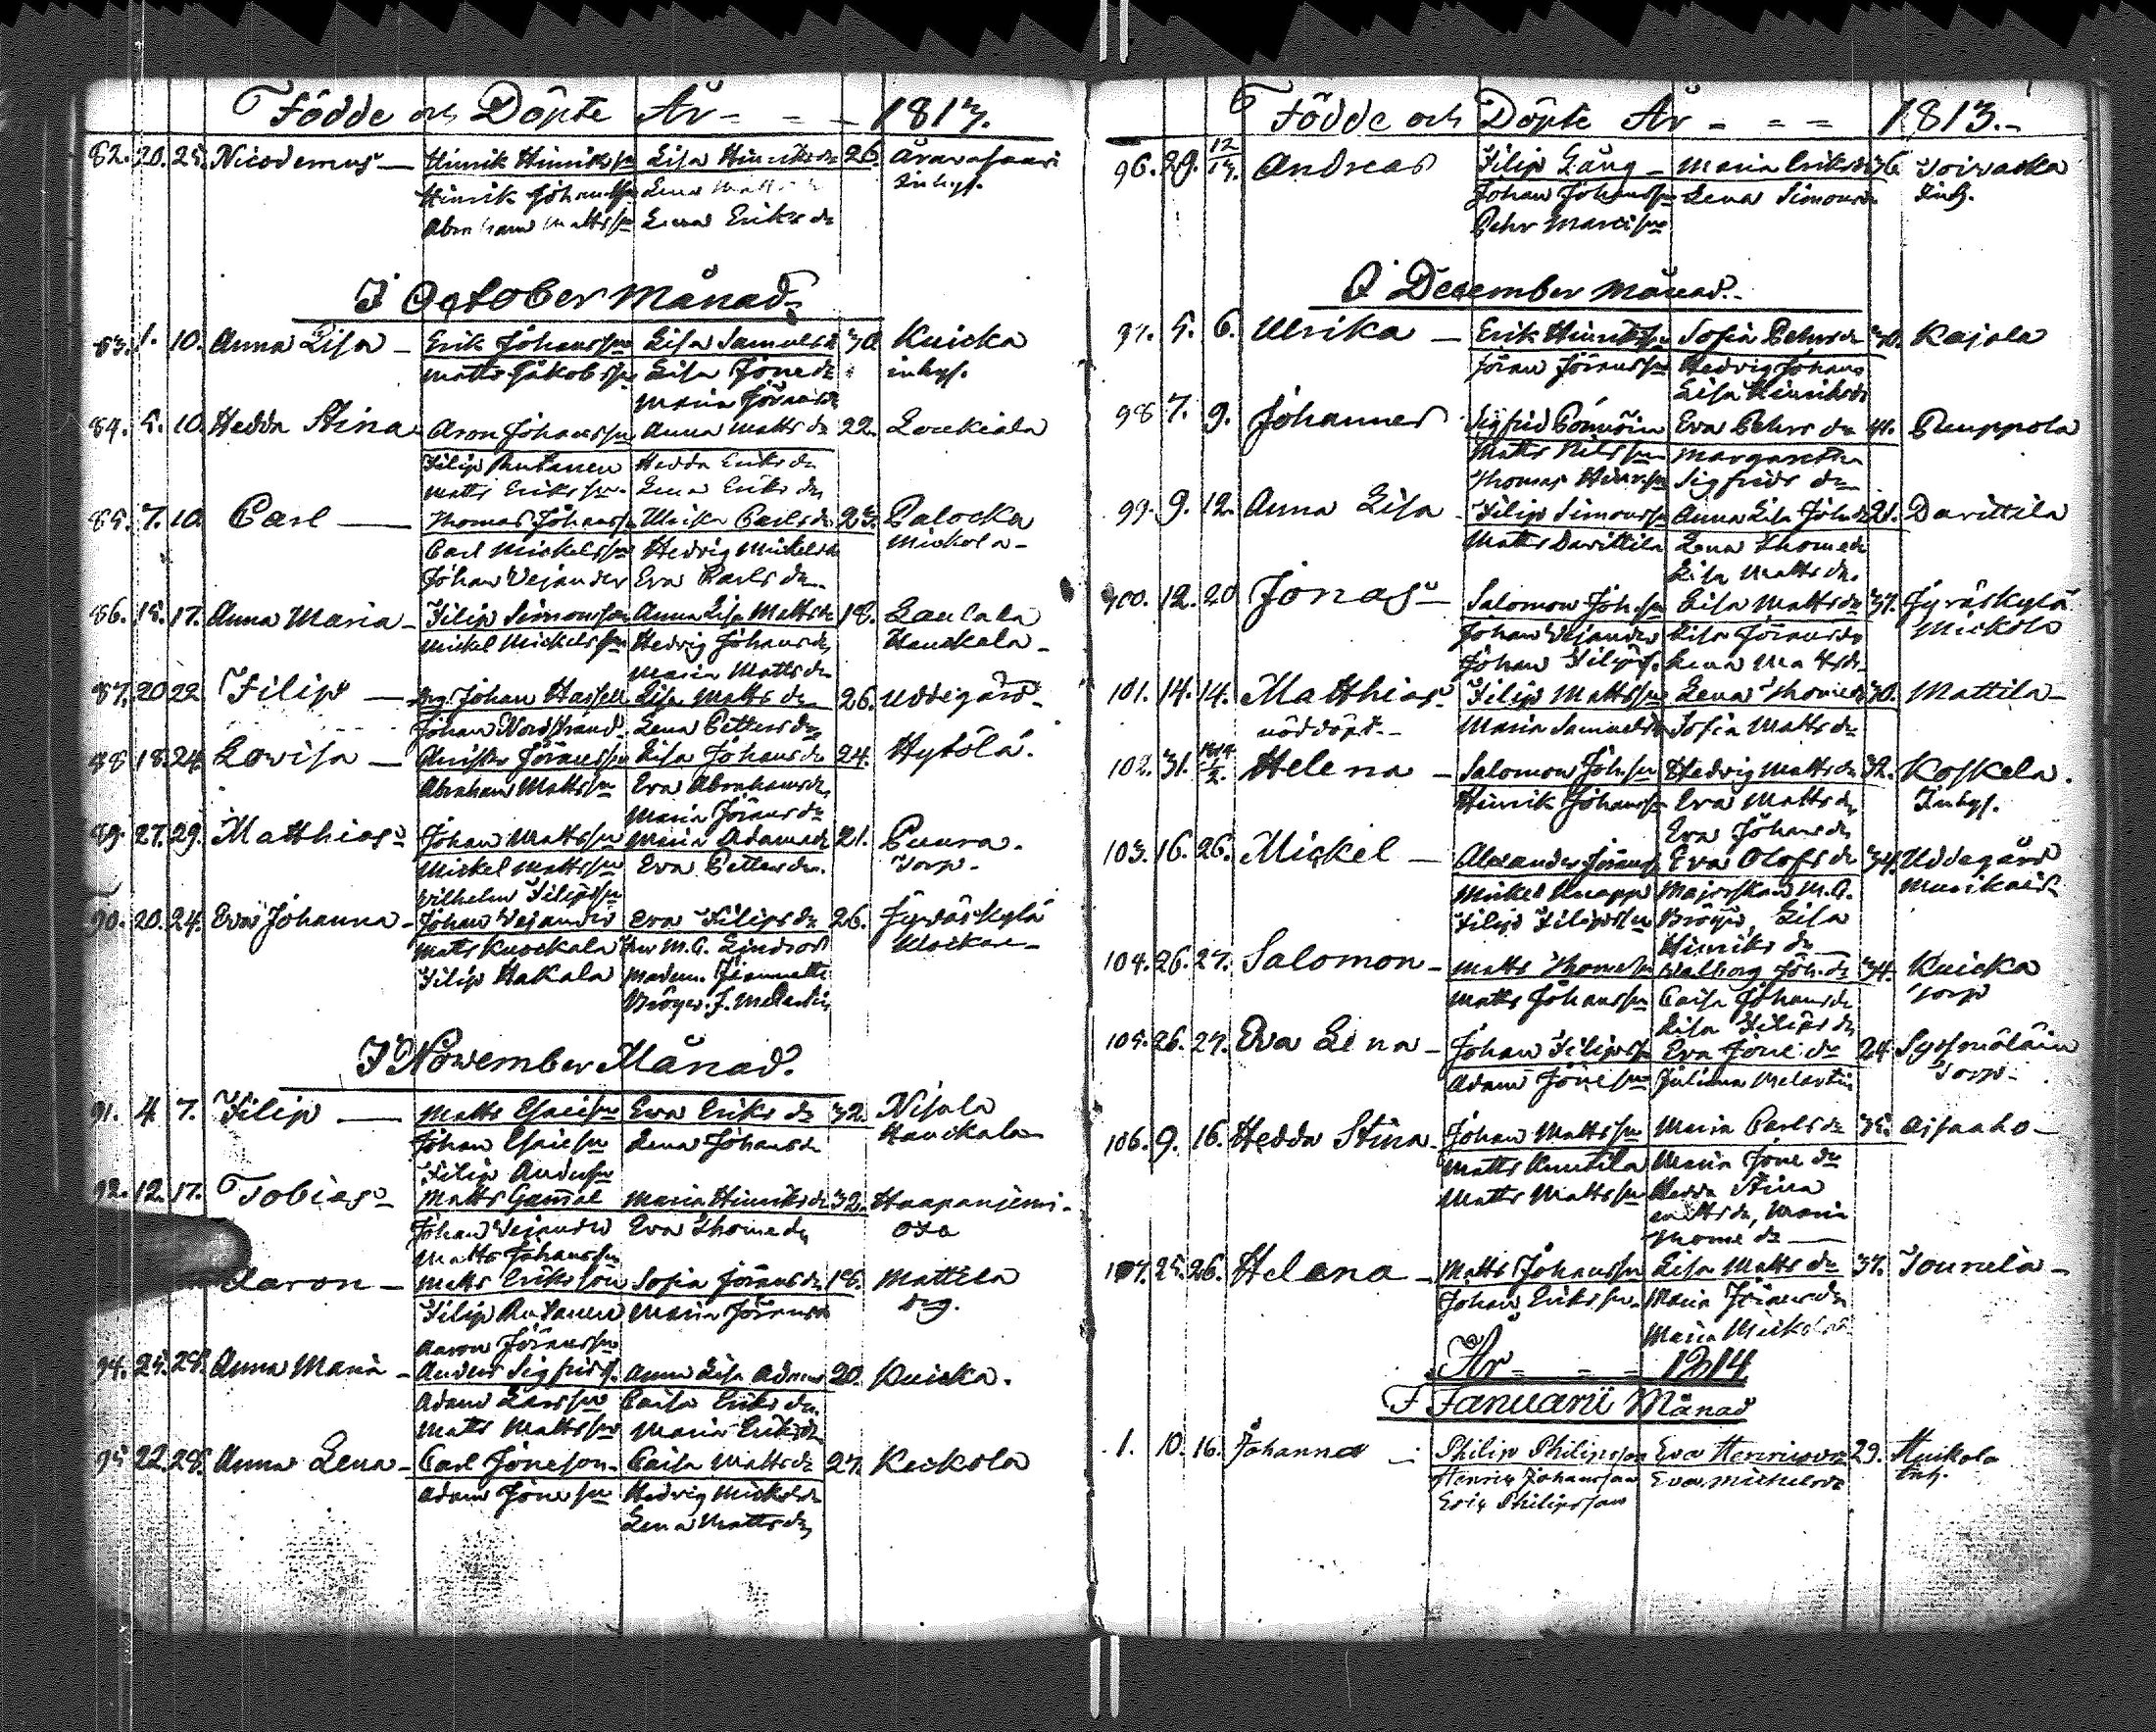 Födde och Döpte År - - - 1813.
82. 20. 25. Nicodemus — Hinrik Hinrikss Lisa Hinriksdr 26.
inhys.
Hinrik Johanss Lena
Abraham Mattss Lena Eriksdr
I October Månad
83. 1. 10. Anna Lisa — Erik Johanss Lisa Samuelsd 30 Kuicka
Matts Jakobss Lisa Jönedr inhys.
Maria Jöransdr
84. 5. 10. Hedda Stina Aron Johanss Anna Mattsdr 22. Loukiala
Filip Rutanen Hedda Eriksdr
Matts Erikss. Lena Eriksdr
85. 7. 10. Carl — Thomas Johanss Ulrika Carlsdr 23. Palocka
Carl Mickelss Hedvig Mickelsdr Mickola
Johan Wejander Eva Carlsdr
86. 15. 17. Anna Maria — Filip Simonsson Anna Lisa Mattsdr 18. Laucala
Mickel Mickelss Hedvig Johansdr Hauckala
Maria Mattsdr
87. 20 22 Filip — Johan Hassell Lisa Mattsdr 26. Uddegård
Johan Nordstrand. Lena Pettersdr
88 18. 24. Lovisa — Jöranss Lisa Johansdr 24. Hytölä.
Abraham Mattss Eva Abrahamsdr
Maria Jöransdr
89. 27. 29. Matthias Johan Mattss Maria Adamsdr 21. Puura.
Mickel Mattss Eva Pettersdr. Torp.
Vilhelm Filipss
90. 20. 24. Eva Johanna — Johan Wejander Eva Filipsdr 26. Jyväskylä
Matts Kuockala Fru M. G.
Filip Hakala Madem.
J. Melartin
I November Månad.
91. 4. 7. Filip — Matts Esaiess Eva Eriksdr 32. Nisula
Johan Esaiess Lena Johansdr Hauckala
Filip Anderss
92. 12. 17. Tobias — Matts Gammal Maria Hinriksdr 32. Haapaniemi
Johan Wejander Eva Thomedr
Matts Johanss
Aaron — Matts Eriksson Sofia Jöransdr 18. Mattila
Filip Rutanen Maria Jöransdr drg.
Aaron Jöranss
94. 25. 28. Anna Maria — Anders Sigfrids. Anna Lisa Adams 20. Kuicka.
Adam Larss Caisa Eriksdr.
Matts Mattss Maria Eriksdr
95 22. 28. Anna Lena — Carl Jöneson Caisa Mattsdr 27. Keckola
Adam Jöness Hedvig Mickelsdr
Lena Mattsdr
Födde och Döpte År - - - 1813.
96. 29. 12/13. Andreas Filip Lång — Maria Eriksdr 36 Toivacka
Johan Johanss Lena Simonsdr Inh.
Pehr Marciss
I December Månad.
97. 5. 6. Ulrika — Erik Hinrikss Sofia Pehrsdr 30. Kajala
Jöran Jöranss Hedvig Johans
Lisa Hinriksdr
98 7. 9. Johannes Sigfrid Eva Pehrsdr 41. Puuppola
Matts Nilss Margaretha
Thomas Hinrss Sigfridsdr
99. 9. 12. Anna Lisa — Filip Simonss Anna Lisa Johsd 21. Davittila
Matts Davittila Lena Thomedr
Lisa Mattsdr.
100. 12. 20 Jonas — Salomon Johss Lisa Mattsdr 37. Jyväskylä
Johan Wejander Lisa Jöransdr Mickola
Johan Filips. Lena Mattsdr
101. 14. 14. Matthias Filip Mattss Lena Thomedr 30. Mattila
nöddöpt. Maria Samuelsdr Sofia Mattsdr
102. 31. 1814 1/2. Helena — Salomon Johss Hedvig Mattsdr 32. Koskela.
Hinrik Johanss Eva Mattsdr Inhys.
Eva Johansdr
103. 16. 26. Mickel — Alexander Jöranss Eva Olofsdr 34. Uddegård
Mickel Knapp Majorskan M. G. Musikant
Filip Filipss Lisa
Hinriksdr
104. 26. 27. Salomon — Matts Thomess Walborg Johsdr 34. Kuicka
Matts Johanss Caisa Johansdr Torp
Lisa Filipsdr
105. 26. 27. Eva Lena — Johan Filipss Eva Jönedr 24.
Adam Jöness Juliana Melartin Torp.
106. 9. 16. Hedda Stina — Johan Mattss Maria Carlsdr 35.
Matts Knutila Maria Jönedr
Matts Mattss Hedda Stina
Mattsdr, Maria
Thomedr —
107. 25. 26. Helena — Matts Johanss Lisa Mattsdr 37. Tourula
Johan Erikss. Maria Jöransdr
Maria Mickelsdr
År - - - 1814
I Januarii Månad
1. 10. 16. Johanna — Philip Philipsson Eva Henricsdr 29. Huikola
Henric Johansson Eva Michelsdr Inh.
Eric Philipsson